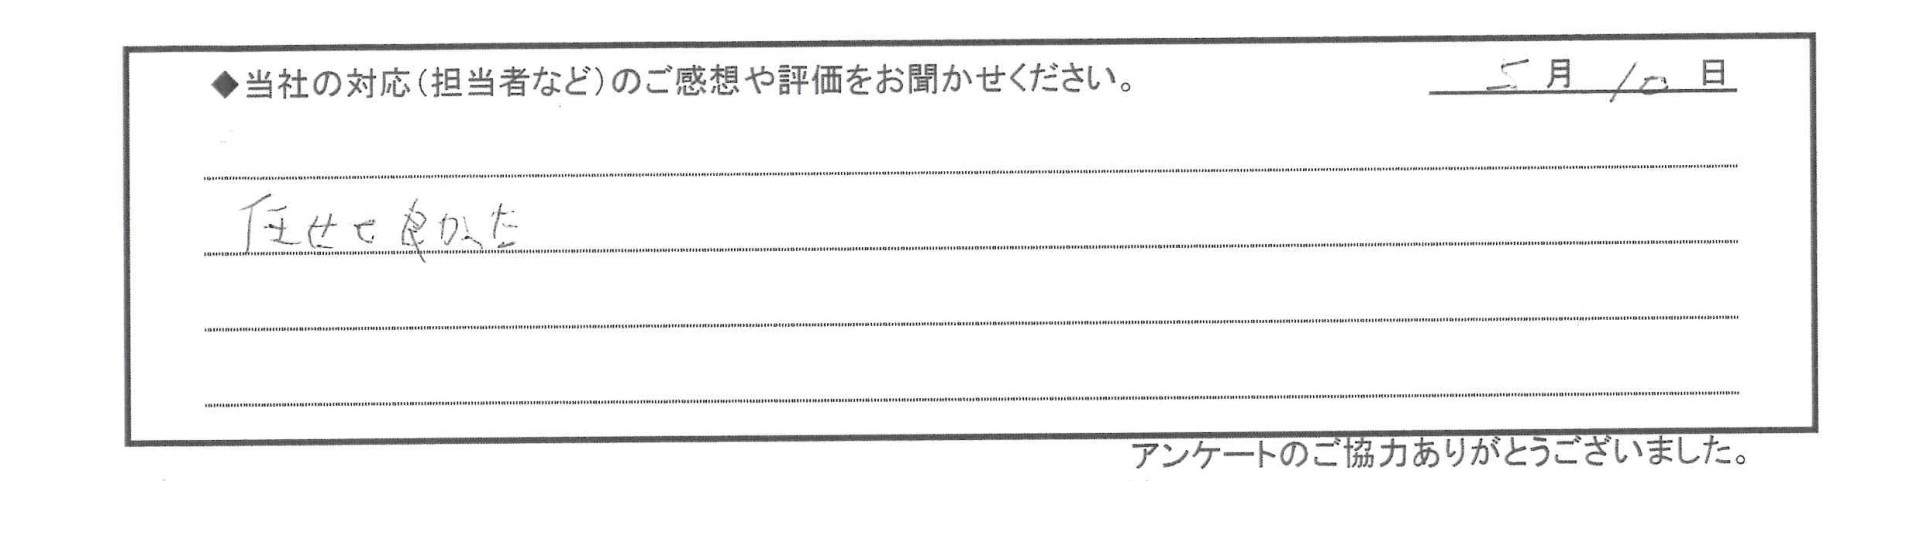 ◆当社の対応(担当者など)のご感想や評価をお聞かせください。
5月10日
任せて良かった
アンケートのご協力ありがとうございました。